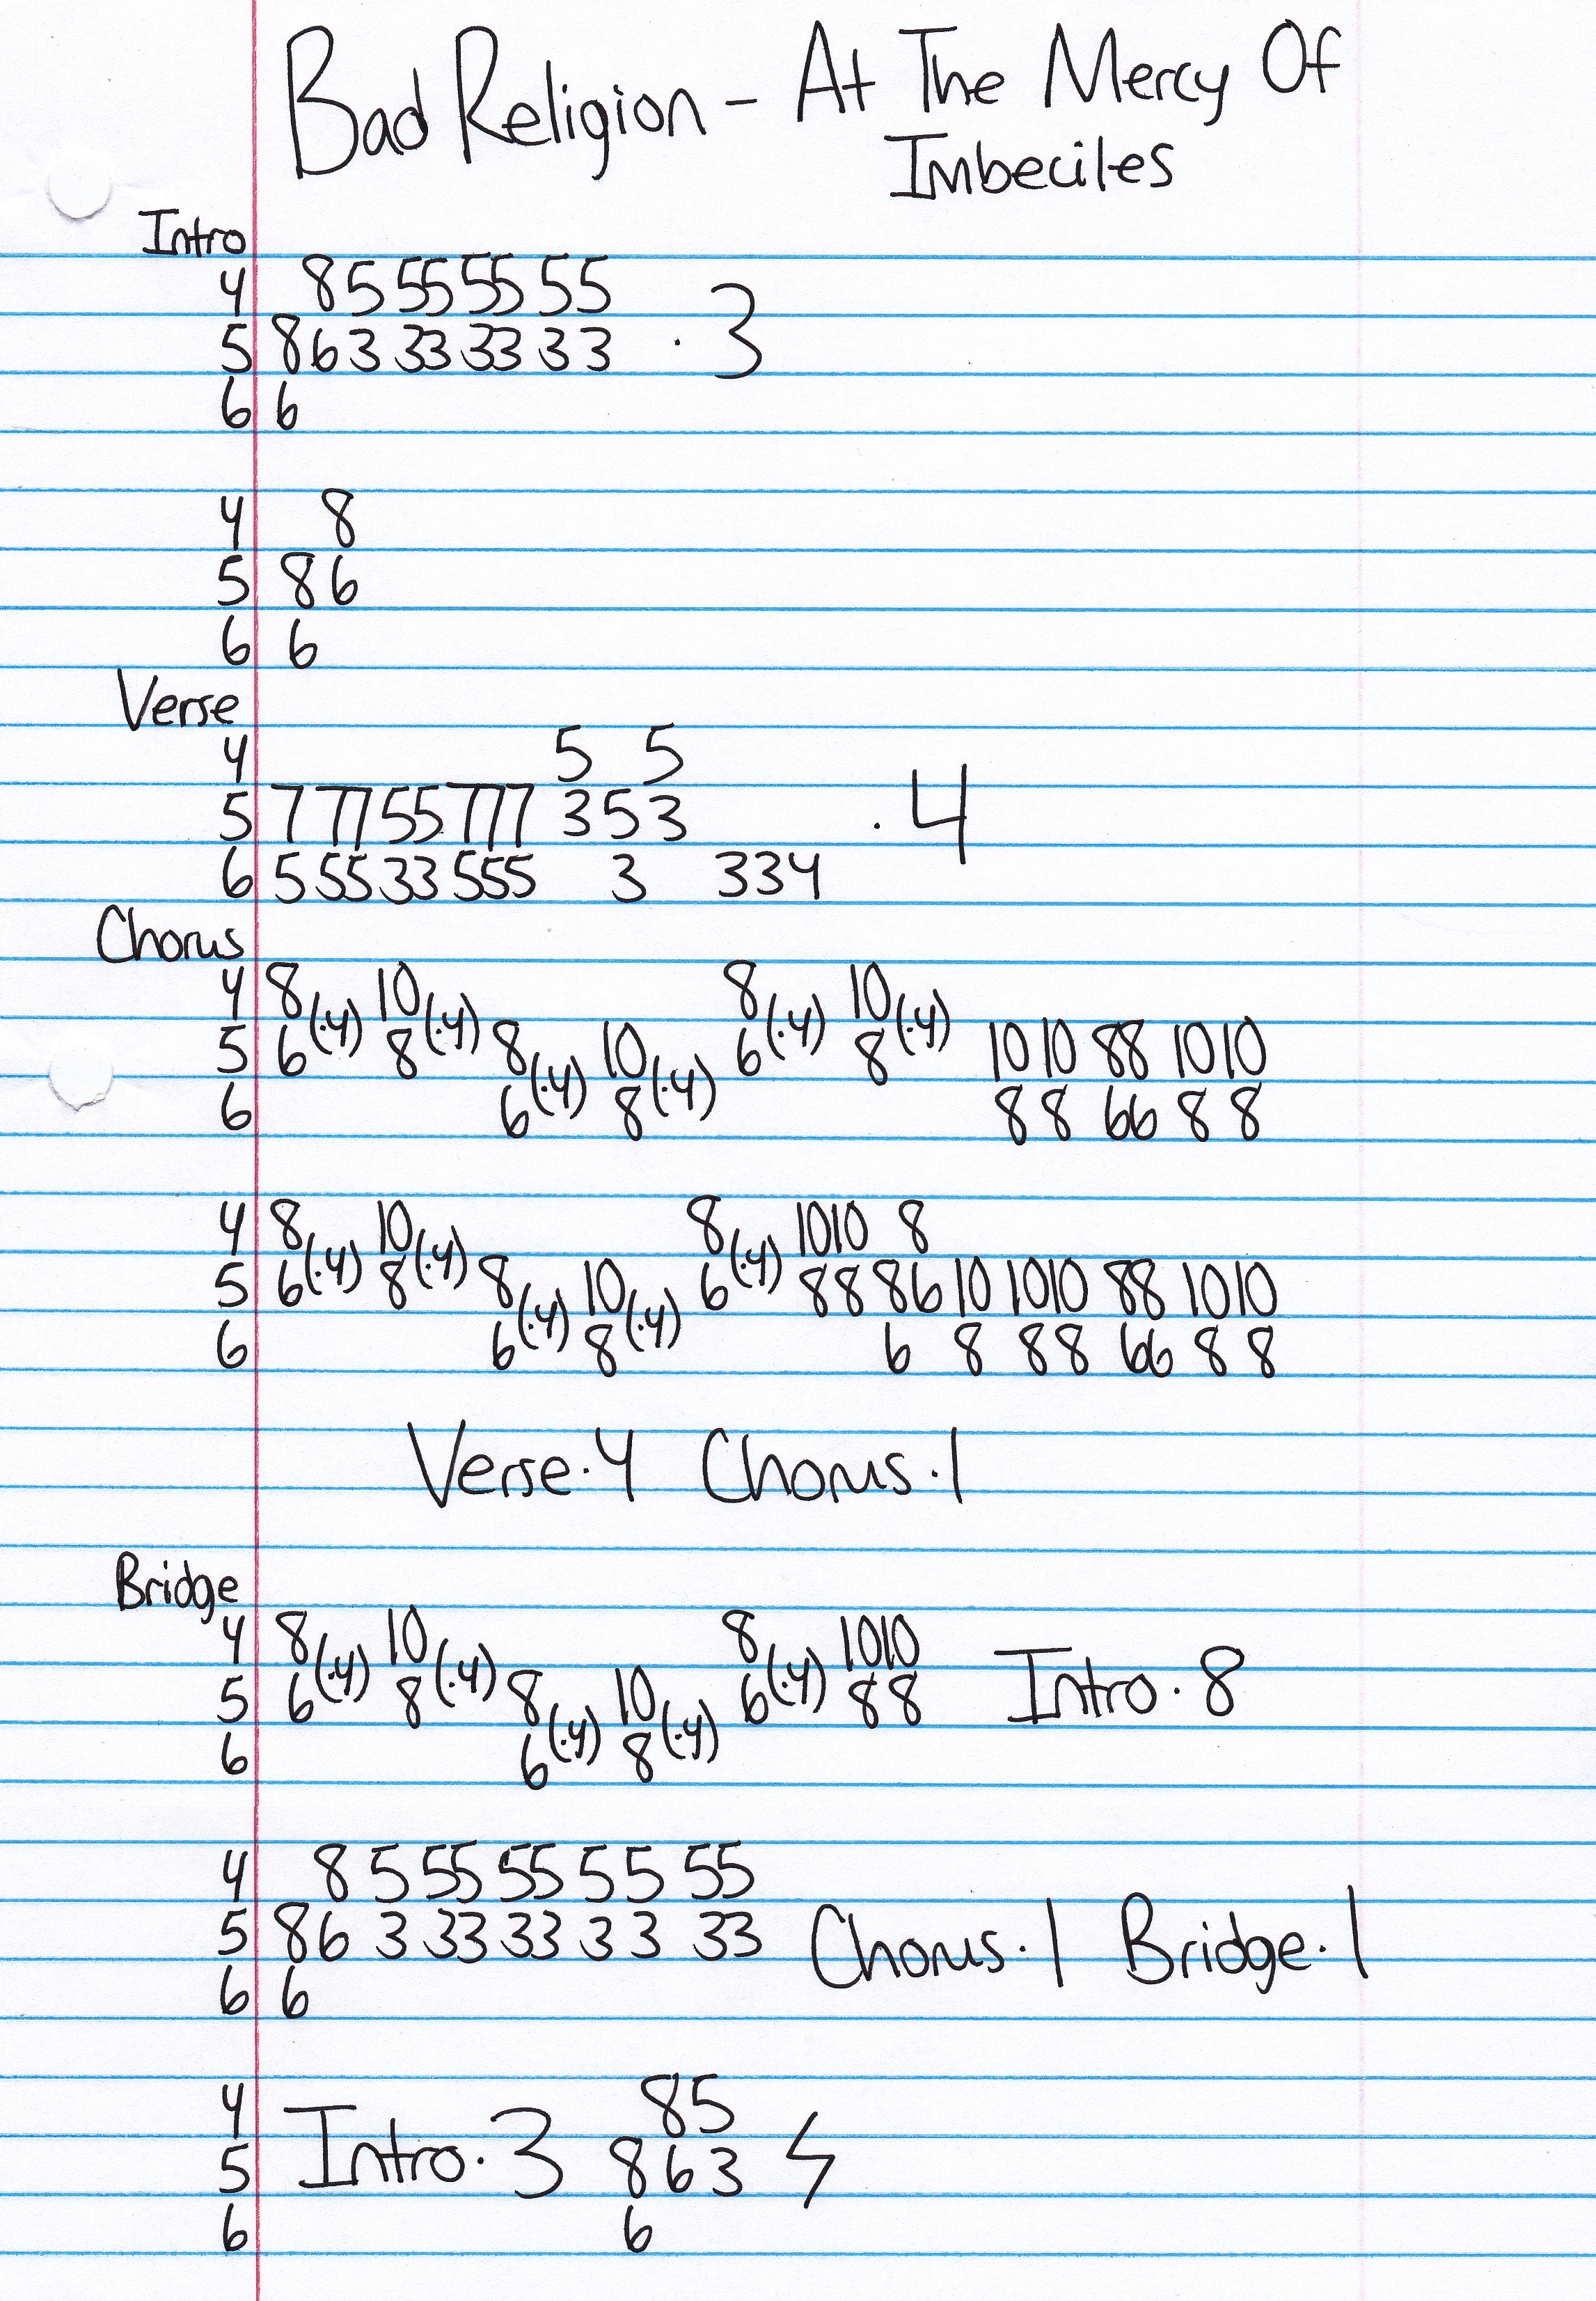 Bad Religion - At The Mercy Of
Imbeciles
Intro
4 8 5 55 55 55
5 8 6 3 33 33 33 · 3
6 6
4 8
5 8 6
6 6
Verse
4 5 5
5 7 77 55 777 3 5 3 · 4
6 5 55 33 555 3 334
Chorus
4 8 (·4) 10 (·4) 8 (·4) 10 (·4)
5 6 8 8 (·4) 10 (·4) 6 8 10 10 88 10 10
6 6 8 8 8 66 8 8
4 8 (·4) 10 (·4) 8 (·4) 10 10 8
5 6 8 8 (·4) 10 (·4) 6 88 8 6 10 10 10 88 10 10
6 6 8 6 8 88 66 8 8
Verse·4 Chorus·1
Bridge
4 8 (·4) 10 (·4) 8 (·4) 10 10
5 6 8 8 (·4) 10 (·4) 6 8 8 Intro·8
6 6 8
4 8 5 55 55 5 5 55
5 8 6 3 33 33 3 3 33 Chorus·1 Bridge·1
6 6
4 8 5
5 Intro·3 8 6 3
6 6